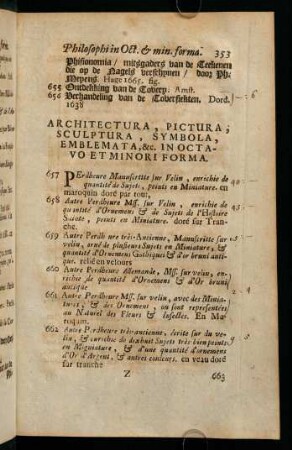 Philosophi in Oct. & min. forma. 353
Phisionomia / mitsgaders van de Teekenen
die op de Nagels verschynen / door Ph.
Meyens. Hage 1665. fig.
655 Ontdekking van de Tovery. Amst.
656 Verhandeling van de Toversiekten. Dord.
1638
ARCHITECTURA, PICTURA,
SCULPTURA, SYMBOLA,
EMBLEMATA, &c. IN OCTA-
VO ET MINORI FORMA.
657 PErdheure Manuscritte sur Velin, enrichie de
quantité de Sujets, peints en Miniature. en
maroquin doré par tout,
658 Autre Perdheure Mss. sur Velin, enrichie de
quantité d'Ornemens & de Sujets de l'Histoire
Sainte, peints en Miniature. doré sur Tran-
che.
659 Autre Perdheure très-Ancienne, Manuscritte sur
velin, orné de plusieurs Sujets en Miniature, &
quantité d'Ornemens Gothiques & d'or bruni anti-
que. relié en velours
660 Autre Perdheure Allemande, Mss. sur velin, en-
richie de quantité d'Ornemens & d'Or bruni
antique
661 Autre Perdheure Mss. sur velin, avec des Minia-
tures, & des Ornemens, où sont representées
au Naturel des Fleurs & Insectes. En Ma-
roquin.
662 Autre Perdheure très-ancienne, écrite sur du ve-
lin, & enrichie de dixhuit Sujets très bien peints
en Mignature, & d'une quantité d'ornemens
d'Or d'Argent, & autres couleurs. en veau doré
sur tranche
Z 663